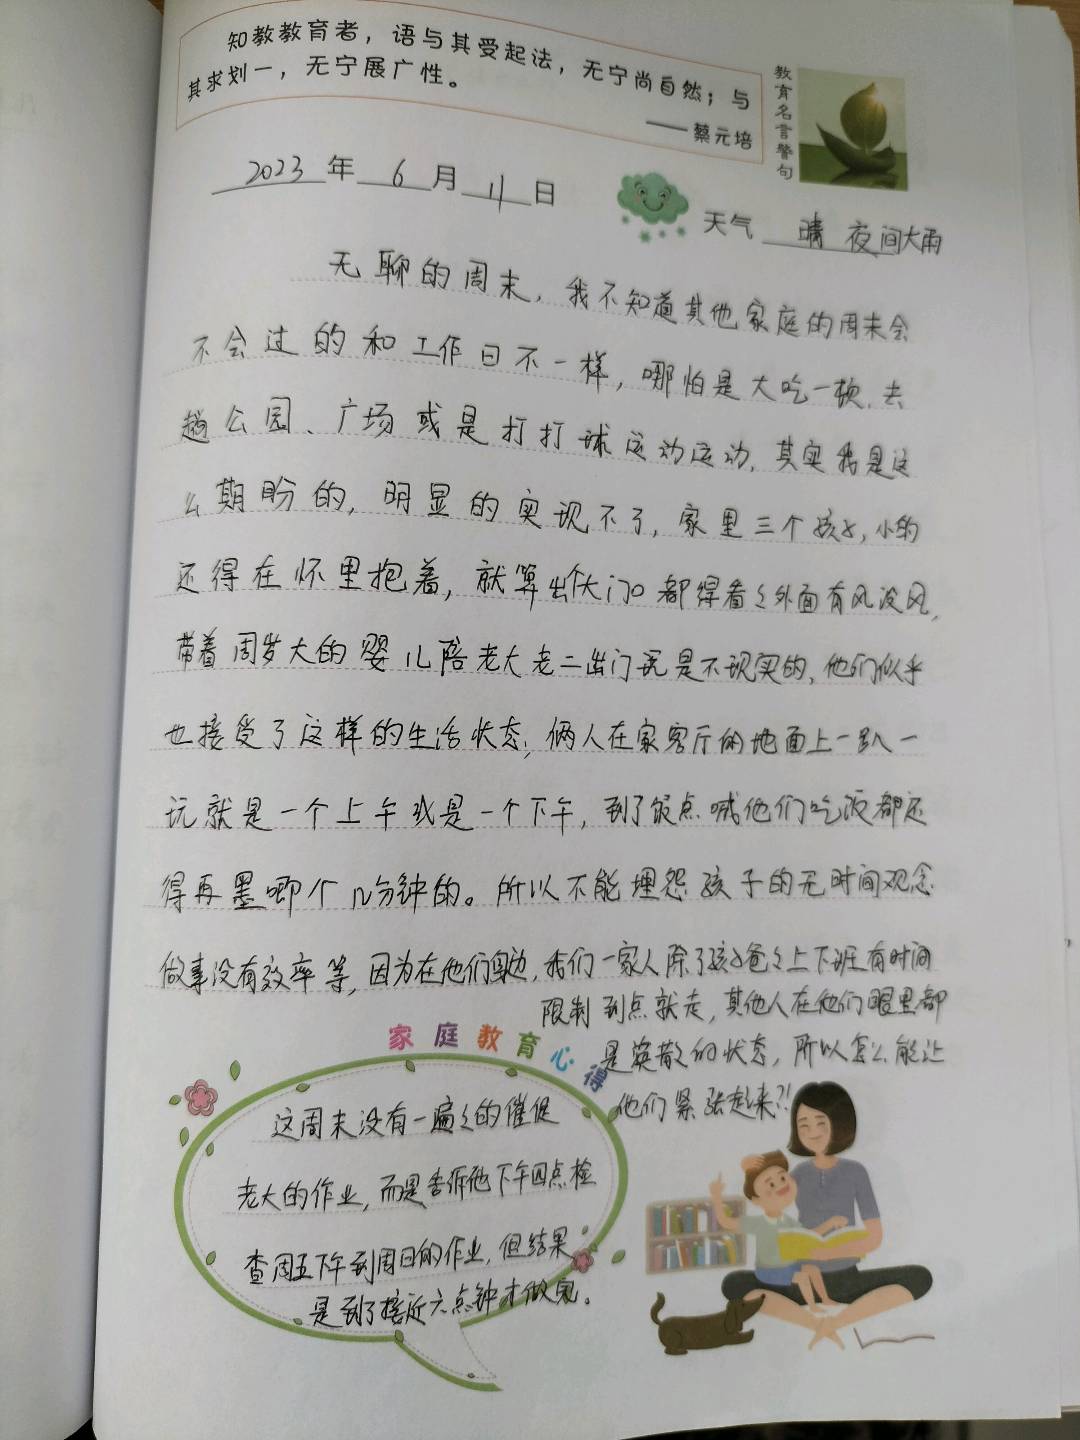 知教教育者，语与其受起法，无宁尚自然；与
其求划一，无宁展广性。
——蔡元培
教育名言警句
2023年6月11日
天气 晴 夜间大雨
无聊的周末，我不知道其他家庭的周末会
不会过的和工作日不一样，哪怕是大吃一顿、去
趟公园、广场或是打打球运动运动，其实我是这
么期盼的，明显的实现不了，家里三个孩子，小的
还得在怀里抱着，就算出个大门口都得看看外面有风没风，
带着周岁大的婴儿陪老大老二出门玩是不现实的，他们似乎
也接受了这样的生活状态，俩人在家客厅的地面上一趴一
玩就是一个上午或是一个下午，到了饭点喊他们吃饭都还
得再墨唧个几分钟的。所以不能埋怨孩子的无时间观念
做事没有效率等，因为在他们身边，我们一家人除了孩子爸爸上下班有时间
限制到点就走，其他人在他们眼里都
是涣散的状态，所以怎么能让
他们紧张起来?!
家庭教育心得
这周末没有一遍遍的催促
老大的作业，而是告诉他下午四点检
查周五下午到周日的作业，但结果
是到了接近六点钟才做完。